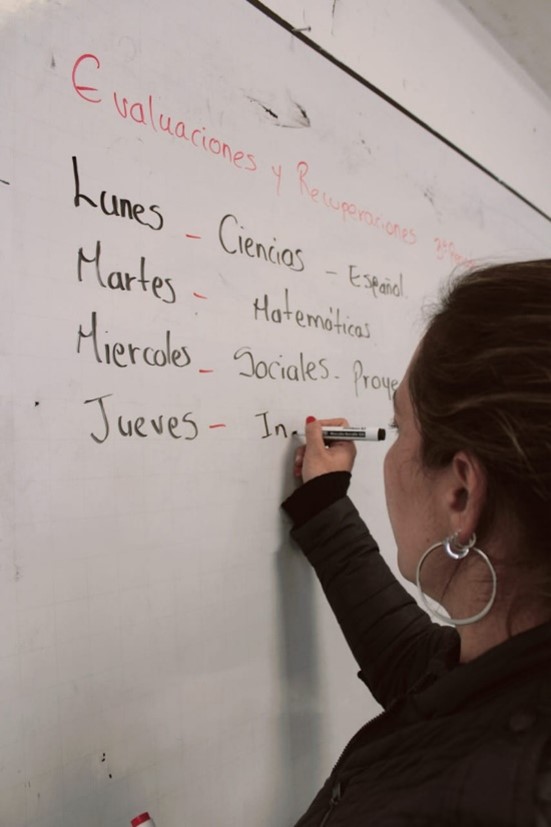 Evaluaciones y Recuperaciones
Lunes - Ciencias - Español
Martes - Matemáticas
Miercoles - Sociales - Proye
Jueves - In